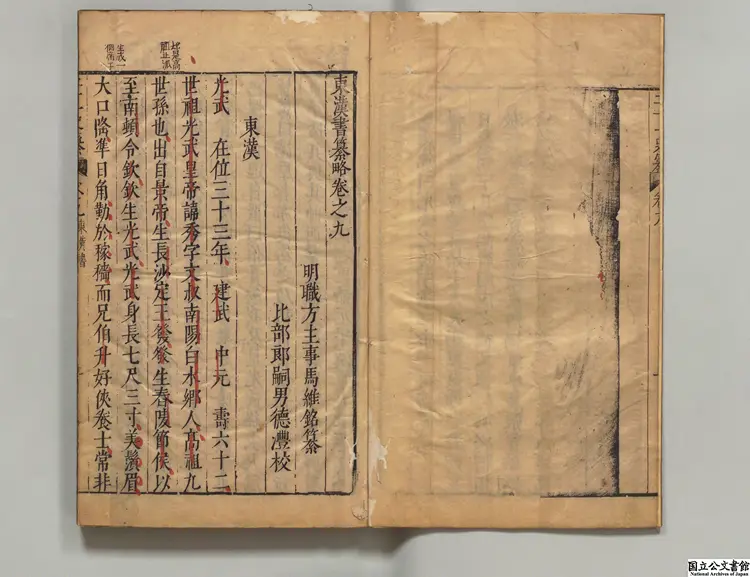 東漢書纂略卷之九
明職方主事馬維銘纂
比部郎嗣男德灃校
東漢
光武 在位三十三年 建武 中元 壽六十二
世祖光武皇帝諱秀字文叔南陽白水鄉人高祖九
世孫也出自景帝生長沙定王發發生舂陵節侯以
至南頓令欽欽生光武光武身長七尺三寸美鬚眉
大口隆準日角勤於稼穡而兄伯升好俠養士常非
国立公文書館
National Archives of Japan